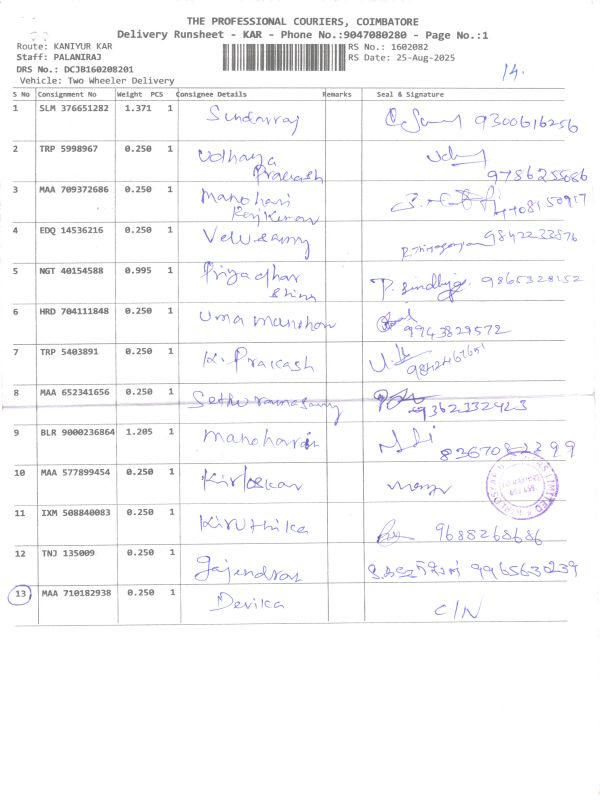 THE PROFESSIONAL COURIERS, COIMBATORE
Delivery Runsheet - KAR - Phone No.:9047080280 - Page No.:1
Route: KANIYUR KAR RS No.: 1602082
Staff: PALANIRAJ RS Date: 25-Aug-2025
DRS No.: DCJB160208201
Vehicle: Two Wheeler Delivery
14.
S No Consignment No Weight PCS Consignee Details Remarks Seal & Signature
1 SLM 376651282 1.371 1 Sundarraj 9300616256
2 TRP 5998967 0.250 1 Udhaya
Prakash 9786255086
3 MAA 709372686 0.250 1 Manohari
Rajkiran
4 EDQ 14536216 0.250 1 Velusamy 9842233876
5 NGT 40154588 0.995 1 Priyadhar
shini P. Sindhuja 9865328152
6 HRD 704111848 0.250 1 Uma Manohar 9943829572
7 TRP 5403891 0.250 1 K. Prakash
8 MAA 652341656 0.250 1 Sethuramasamy 9362332423
9 BLR 9000236864 1.205 1 Manohari
10 MAA 577899454 0.250 1 Kirloskar
11 IXM 508840083 0.250 1 Kiruthika 9688268686
12 TNJ 135009 0.250 1 Gajendran 9965630239
13 MAA 710182938 0.250 1 Devika C/N